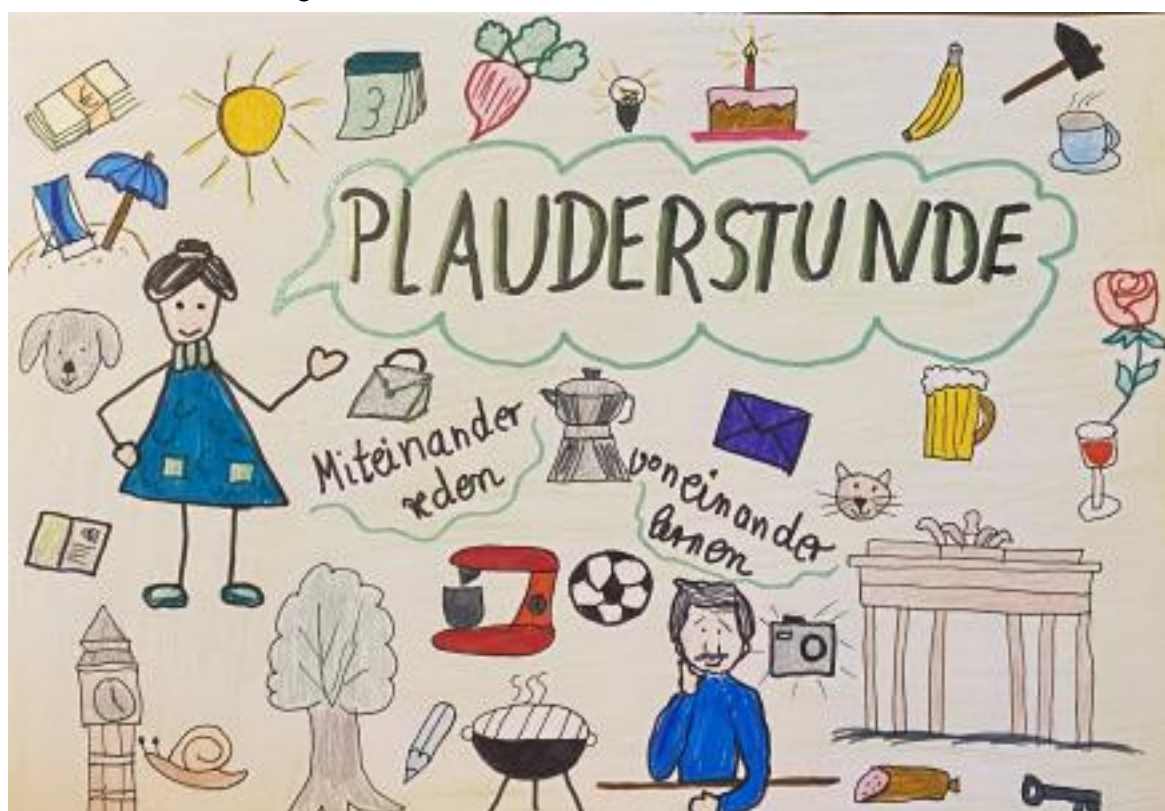 3
PLAUDERSTUNDE
Miteinander
reden
voneinander
lernen